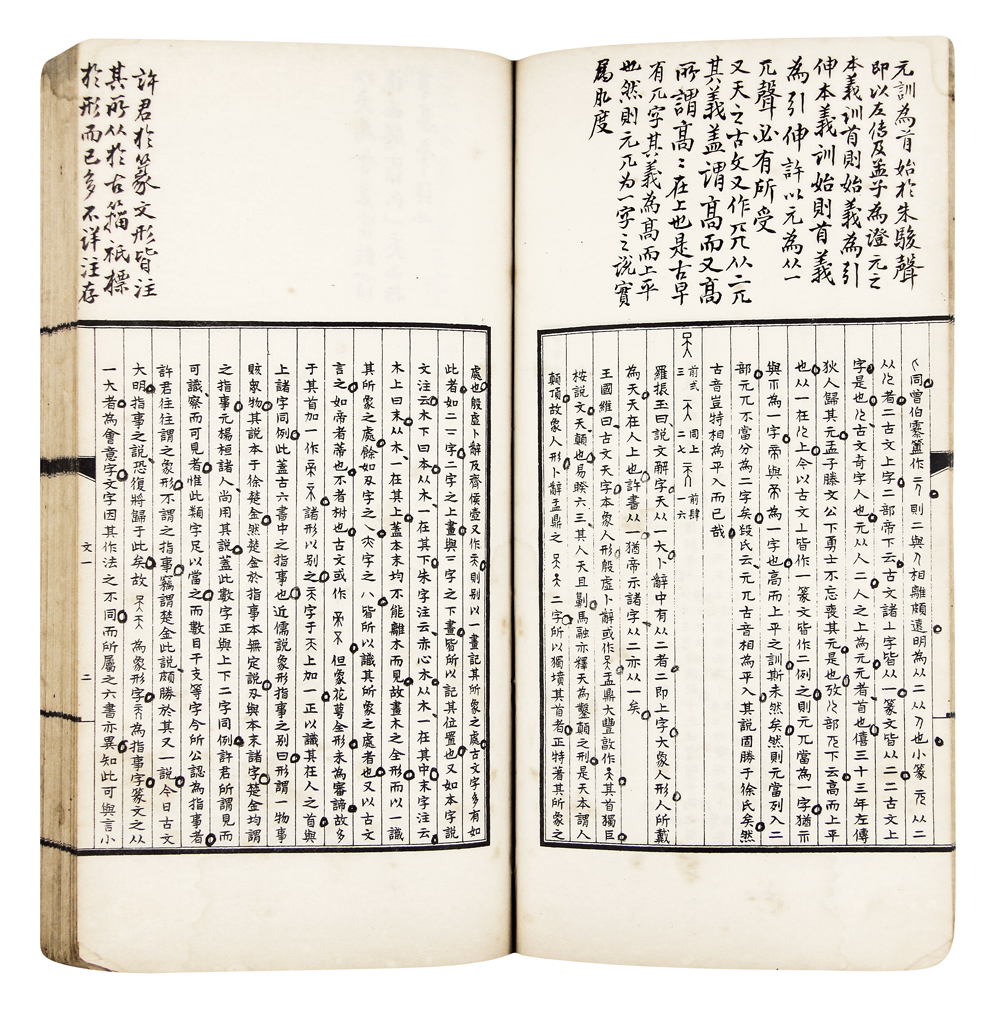 元訓為首始於朱駿聲
即以左傳及孟子為證元之
本義訓首則始義為引
伸本義訓始則首義
為引伸許以元為从一
兀聲必有所受
又天之古文又作兲从二兀
其義蓋謂高而又高
所謂高〻在上也是古早
有兀字其義為高而上平
也然則元兀为一字之說實
爲肊度
同曾伯霥簠作
則二與人相離頗遠明為从二从人也小篆
从二
从
者二古文上字二部帝下云古文諸丄字皆从一篆文皆从二二古文上
字是也
古文奇字人也元从二人二人之上為元元者首也僖三十三年左傳
狄人歸其元孟子滕文公下勇士不忘喪其元是也攷
部兀下云高而上平
也从一在
上今以古文上皆作一篆文皆作二例之則元兀當為一字猶示
與
為一字帝與
為一字也高而上平之訓斯未然矣然則元當列入二
部元兀不當分為二字矣段氏云元兀古音相為平入其說固勝于徐氏矣然
古音豈特相為平入而已哉
前弍 二
同上二七
前肆一六
羅振玉曰說文解字天从一大卜辭中有从二者二即上字大象人形人所戴
為天天在人上也許書从一猶帝示諸字从二亦从一矣
王國維曰古文天字本象人形殷虛卜辭或作
孟鼎大豐敦作
其首獨巨
桉說文天顛也易睽六三其人天且劓馬融亦釋天為鑿顛之刑是天本謂人
顛頂故象人形卜辭孟鼎之
二字所以獨墳其首者正特著其所象之
處也殷虛卜辭及齊侯壺又作
則別以一畫記其所象之處古文字多有如
此者如二二字二字之上畫與二字之下畫皆所以記其位置也又如本字說
文注云木下曰本从木一在其下朱字注云赤心木从木一在其中末字注云
木上曰末从木一在其上蓋本末均不能離木而見故畫木之全形而以一識
其所象之處餘如刄字之丶亦字之八皆所以識其所象之處者也又以古文
言之如帝者蒂也不者柎也古文或作
但象花萼全形未為審諦故多
于其首加一作
諸形以別之
字于
上加一正以識其在人之首與
上諸字同例此蓋古六書中之指事也近儒說象形指事之別曰形謂一物事
賅衆物其說本于徐楚金然楚金於指事本無定說刄與本末諸字楚金均謂
之指事元楊桓諸人尚用其說蓋此數字正與上下二字同例許君所謂見而
可識察而可見者惟此類字足以當之而數目干支等字今所公認為指事者
許君往往謂之象形不謂之指事竊謂楚金此說頗勝於其又一說今日古文
大明指事之說恐復將歸于此矣故
為象形字
為指事字篆文之从
一大者為會意字文字因其作法之不同而所屬之六書亦異知此可與言小
文一
二
許君於篆文形皆注
其所从於古籀祇標
於形而已多不詳注存